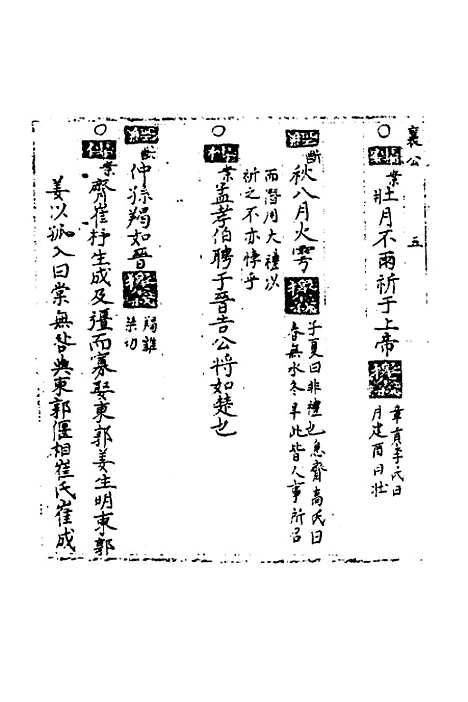 襄公 五
○ 案壯月不雨祈于上帝 章貢李氏曰
月建酉曰壯
經斷 秋八月大雩 子夏曰非禮也息齋高氏曰
春無水冬旱此皆人事所召
而潛用大禮以
祈之不亦悖乎
○ 案孟孝伯聘于晉告公將如楚也
經斷 仲孫羯如晉 羯雖
桀切
○ 案齊崔杼生成及彊而寡娶東郭姜生明東郭
姜以孤入曰棠無咎與東郭偃相崔氏崔成